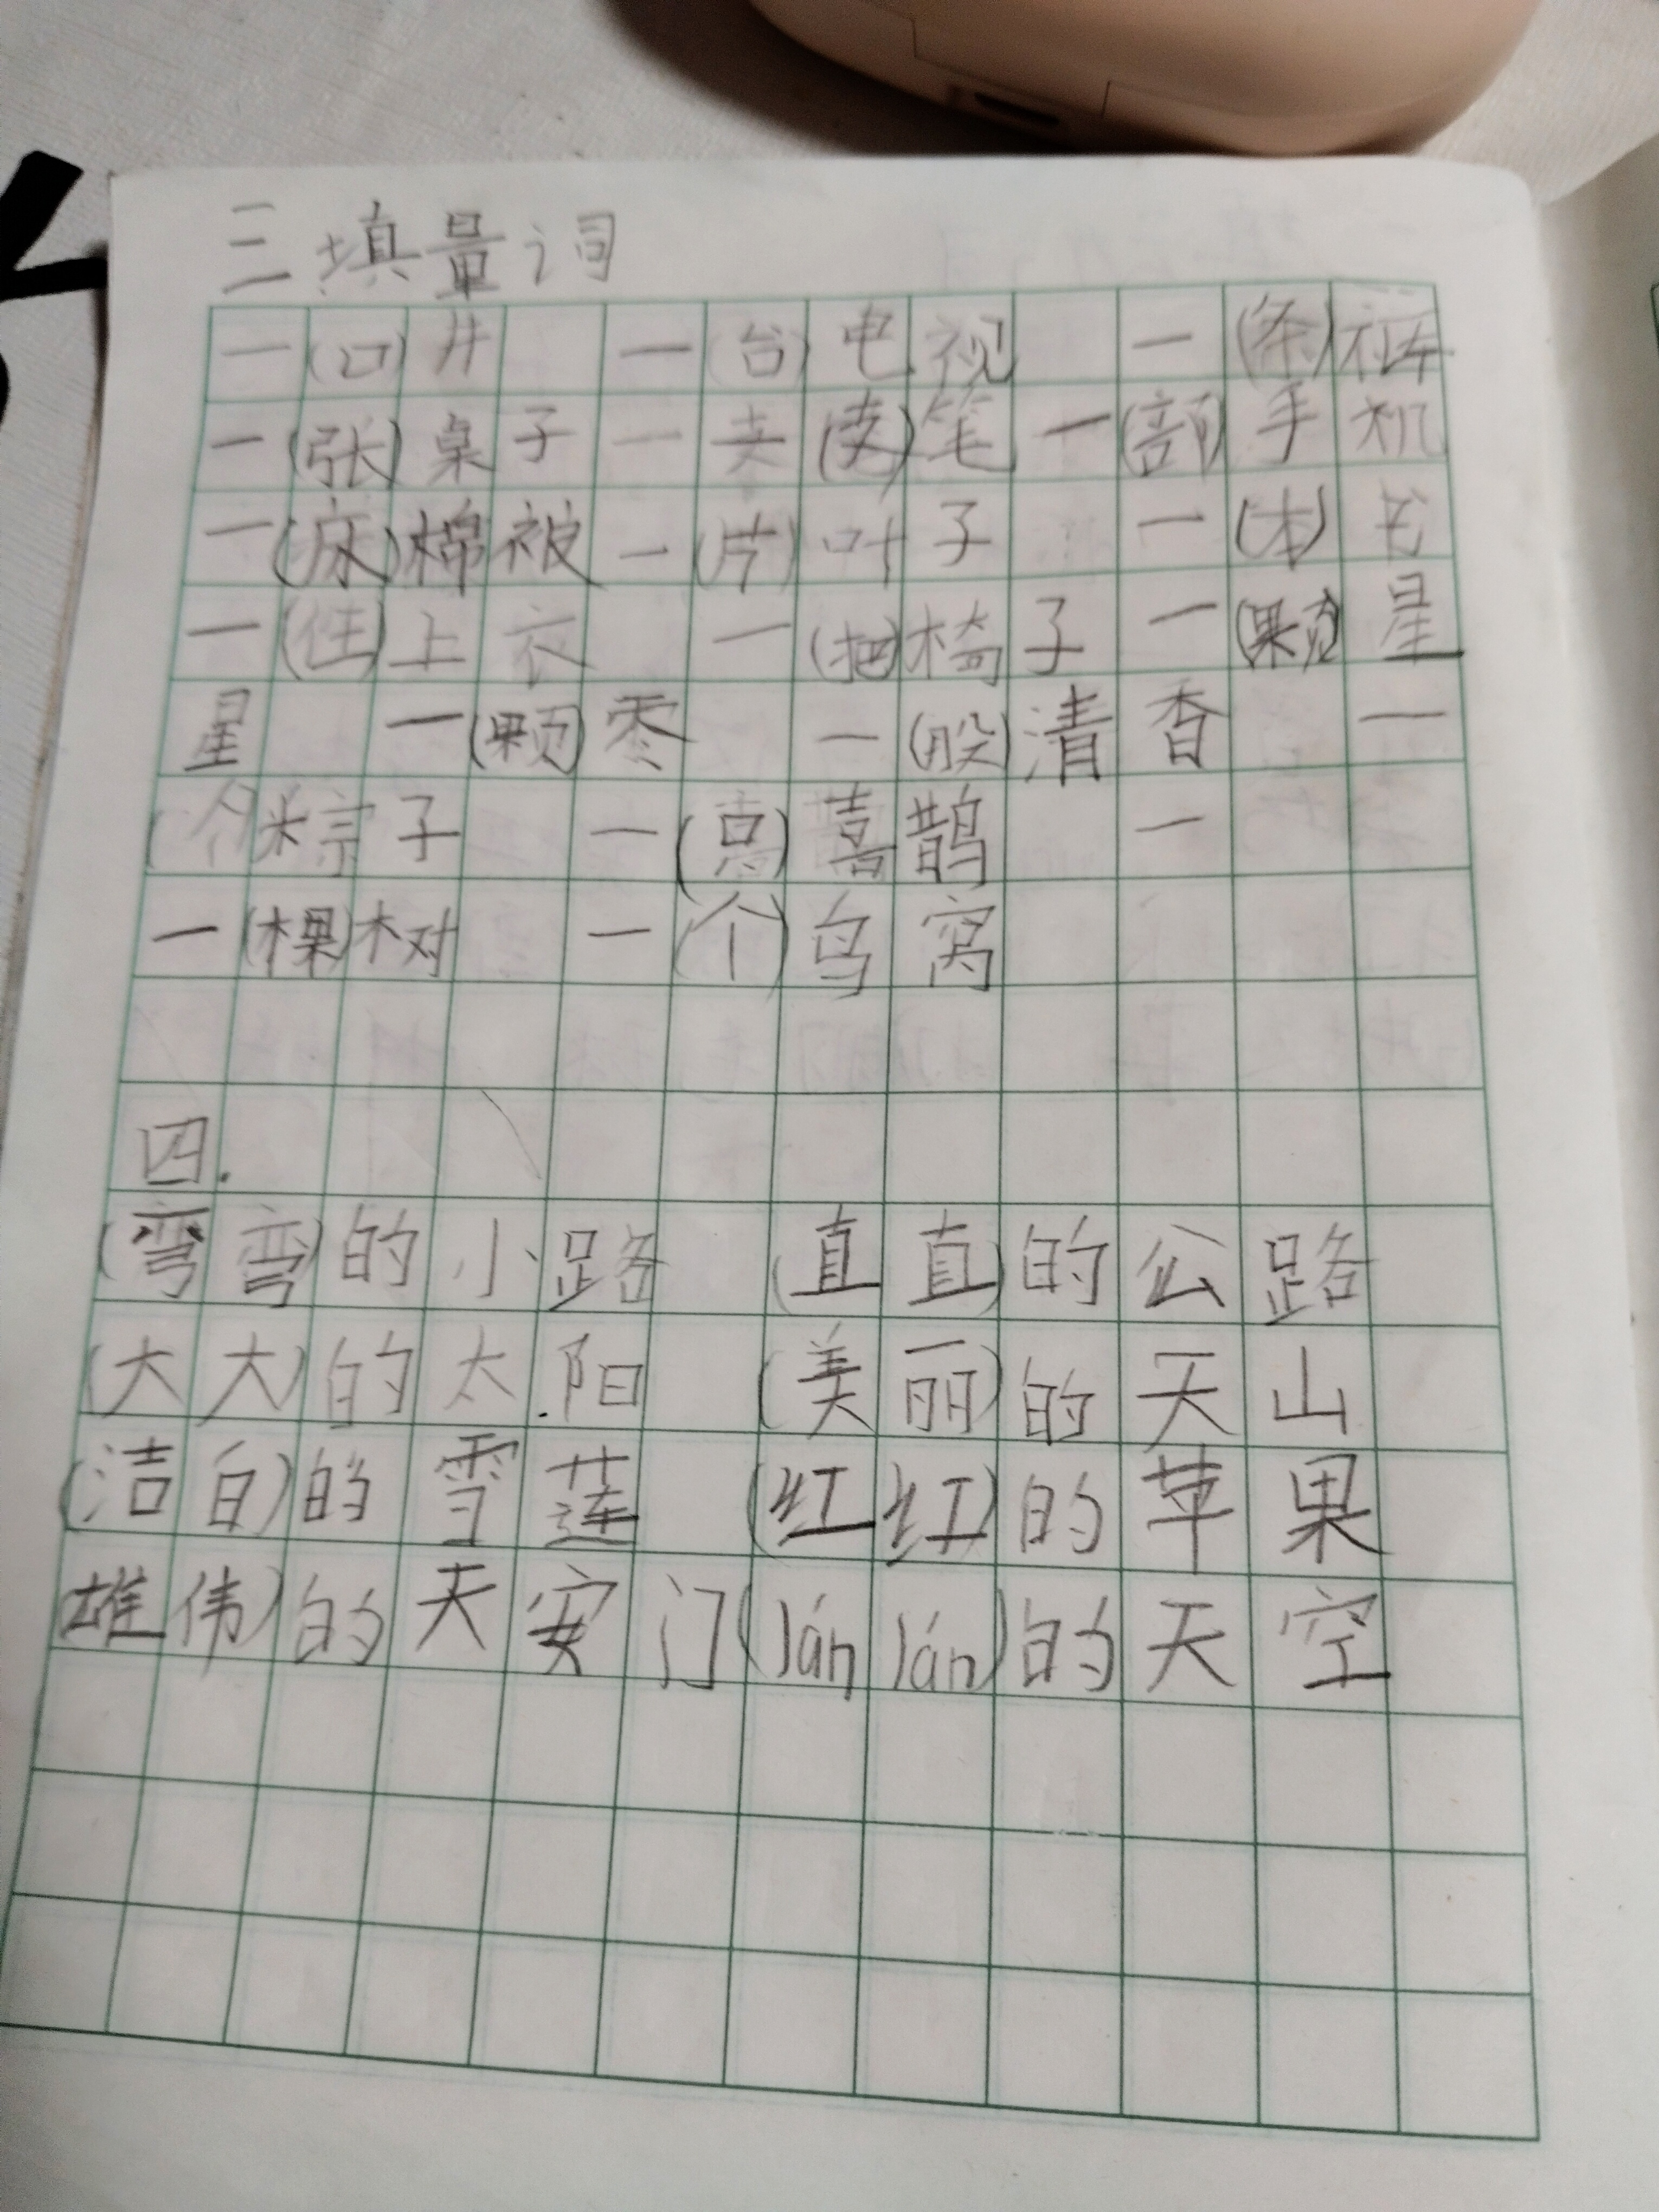 三填量词
一(口)井 一台)电视 一(条)裤
一(张)桌子一支(支)笔一(部)手机
一(床)棉被一(片)叶子 一(本)书
一(住)上衣 一(把)椅子一(颗)星
星 一(颗)枣 一(股)清香 一
(个粽子 一( )喜鹊 一
一(棵)树 一(个)鸟窝
四.
(弯弯)的小路 (直直)的公路
(大大)的太阳 (美丽)的天山
(洁白)的雪莲 (红红)的苹果
雄伟)的天安门(lán lán)的天空